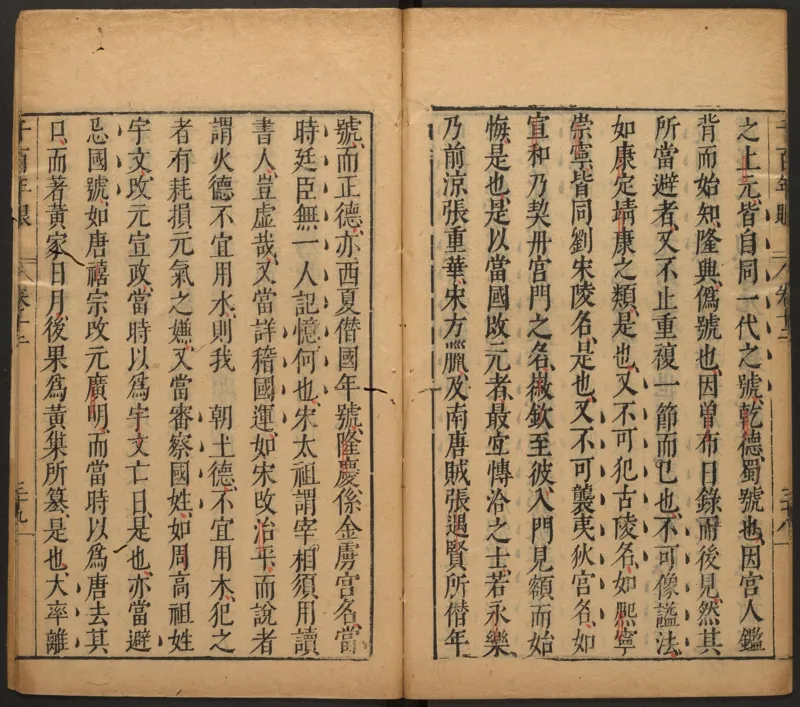 千百年眼 卷十二 三十八
之上元、皆自同一代之號、乾德、蜀號也、因宮人鑑
背而始知、隆興、僞號也、因曾布日錄而後見、然其
所當避者、又不止重複一節而已也、不可像謚法、
如康定靖康之類、是也、又不可犯古陵名、如熈寧
崇寧、皆同劉宋陵名、是也、又不可襲夷狄宮名、如
宣和乃契丹宮門之名、徽欽至彼、入門見額而始
悔、是也、是以當國改元者、最宜博洽之士、若永樂
乃前涼張重華、宋方臘、及南唐賊張遇賢所僭年
號、而正德、亦西夏僭國年號、隆慶係金虜宮名、當
時廷臣無一人記憶、何也、宋太祖謂宰相須用讀
書人、豈虛哉、又當詳稽國運、如宋改治平、而說者
謂火德不宜用水、則我 朝土德、不宜用木、犯之
者有耗損元氣之嫌、又當審察國姓、如周高祖姓
宇文、改元宣政、當時以爲宇文亡日、是也、亦當避
忌國號、如唐禧宗改元廣明、而當時以爲唐去其
口、而著黃家日月、後果爲黃巢所篡、是也、大率離
千百年眼 卷十二 三十九